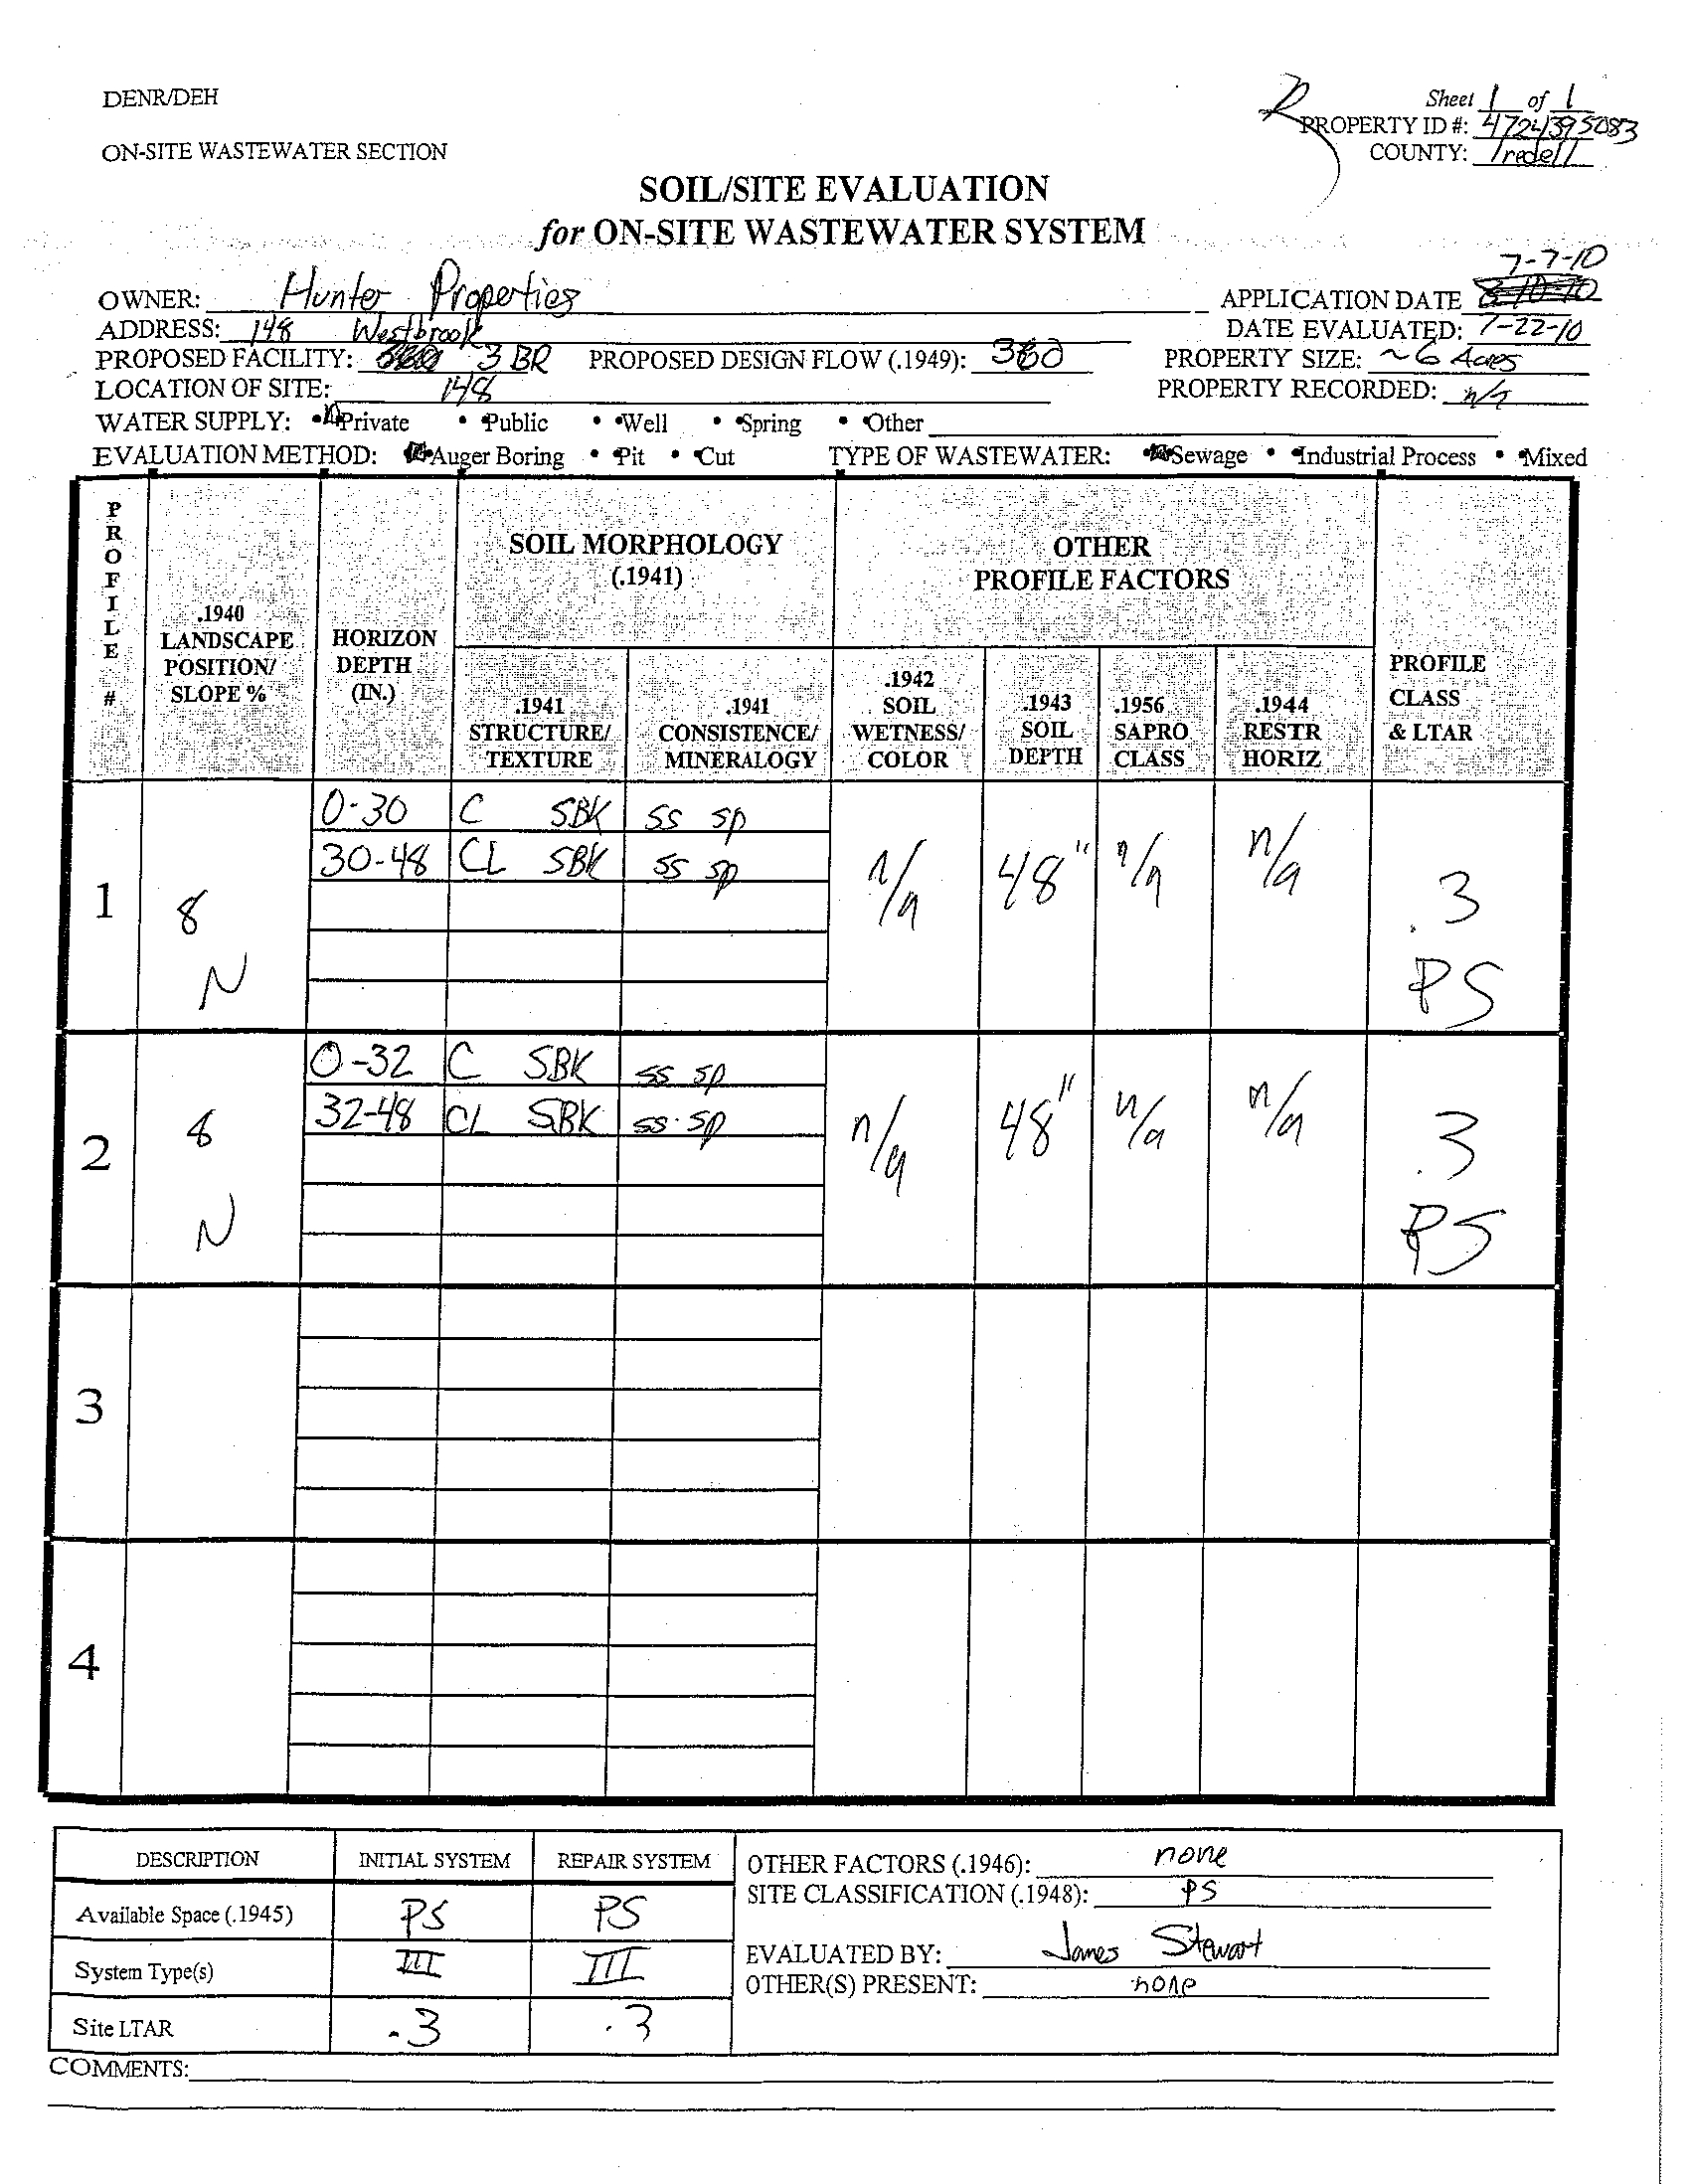 DENR/DEH
Sheet 1 of 1
PROPERTY ID #: 4724395083
ON-SITE WASTEWATER SECTION
COUNTY: Iredell
SOIL/SITE EVALUATION
for ON-SITE WASTEWATER SYSTEM
7-7-10
OWNER: Hunter Properties APPLICATION DATE
ADDRESS: 148 Westbrook DATE EVALUATED: 7-22-10
PROPOSED FACILITY: 3 BR PROPOSED DESIGN FLOW (.1949): 360 PROPERTY SIZE: ~6 Acres
LOCATION OF SITE: 148 PROPERTY RECORDED: n/a
WATER SUPPLY: Private • Public • Well • Spring • Other
EVALUATION METHOD: Auger Boring • Pit • Cut TYPE OF WASTEWATER: Sewage • Industrial Process • Mixed
PROFILE #
.1940 LANDSCAPE POSITION/ SLOPE %
HORIZON DEPTH (IN.)
SOIL MORPHOLOGY (.1941)
OTHER PROFILE FACTORS
.1941 STRUCTURE/ TEXTURE
.1941 CONSISTENCE/ MINERALOGY
.1942 SOIL WETNESS/ COLOR
.1943 SOIL DEPTH
.1956 SAPRO CLASS
.1944 RESTR HORIZ
PROFILE CLASS & LTAR
0-30 C SBK ss sp
30-48 CL SBK ss sp
1 8 N n/a 48" n/a n/a .3 PS
0-32 C SBK ss sp
32-48 CL SBK ss sp
2 8 N n/a 48" n/a n/a .3 PS
3
4
DESCRIPTION INITIAL SYSTEM REPAIR SYSTEM
Available Space (.1945) PS PS
System Type(s) III III
Site LTAR .3 .3
OTHER FACTORS (.1946): none
SITE CLASSIFICATION (.1948): PS
EVALUATED BY: James Stewart
OTHER(S) PRESENT: none
COMMENTS: